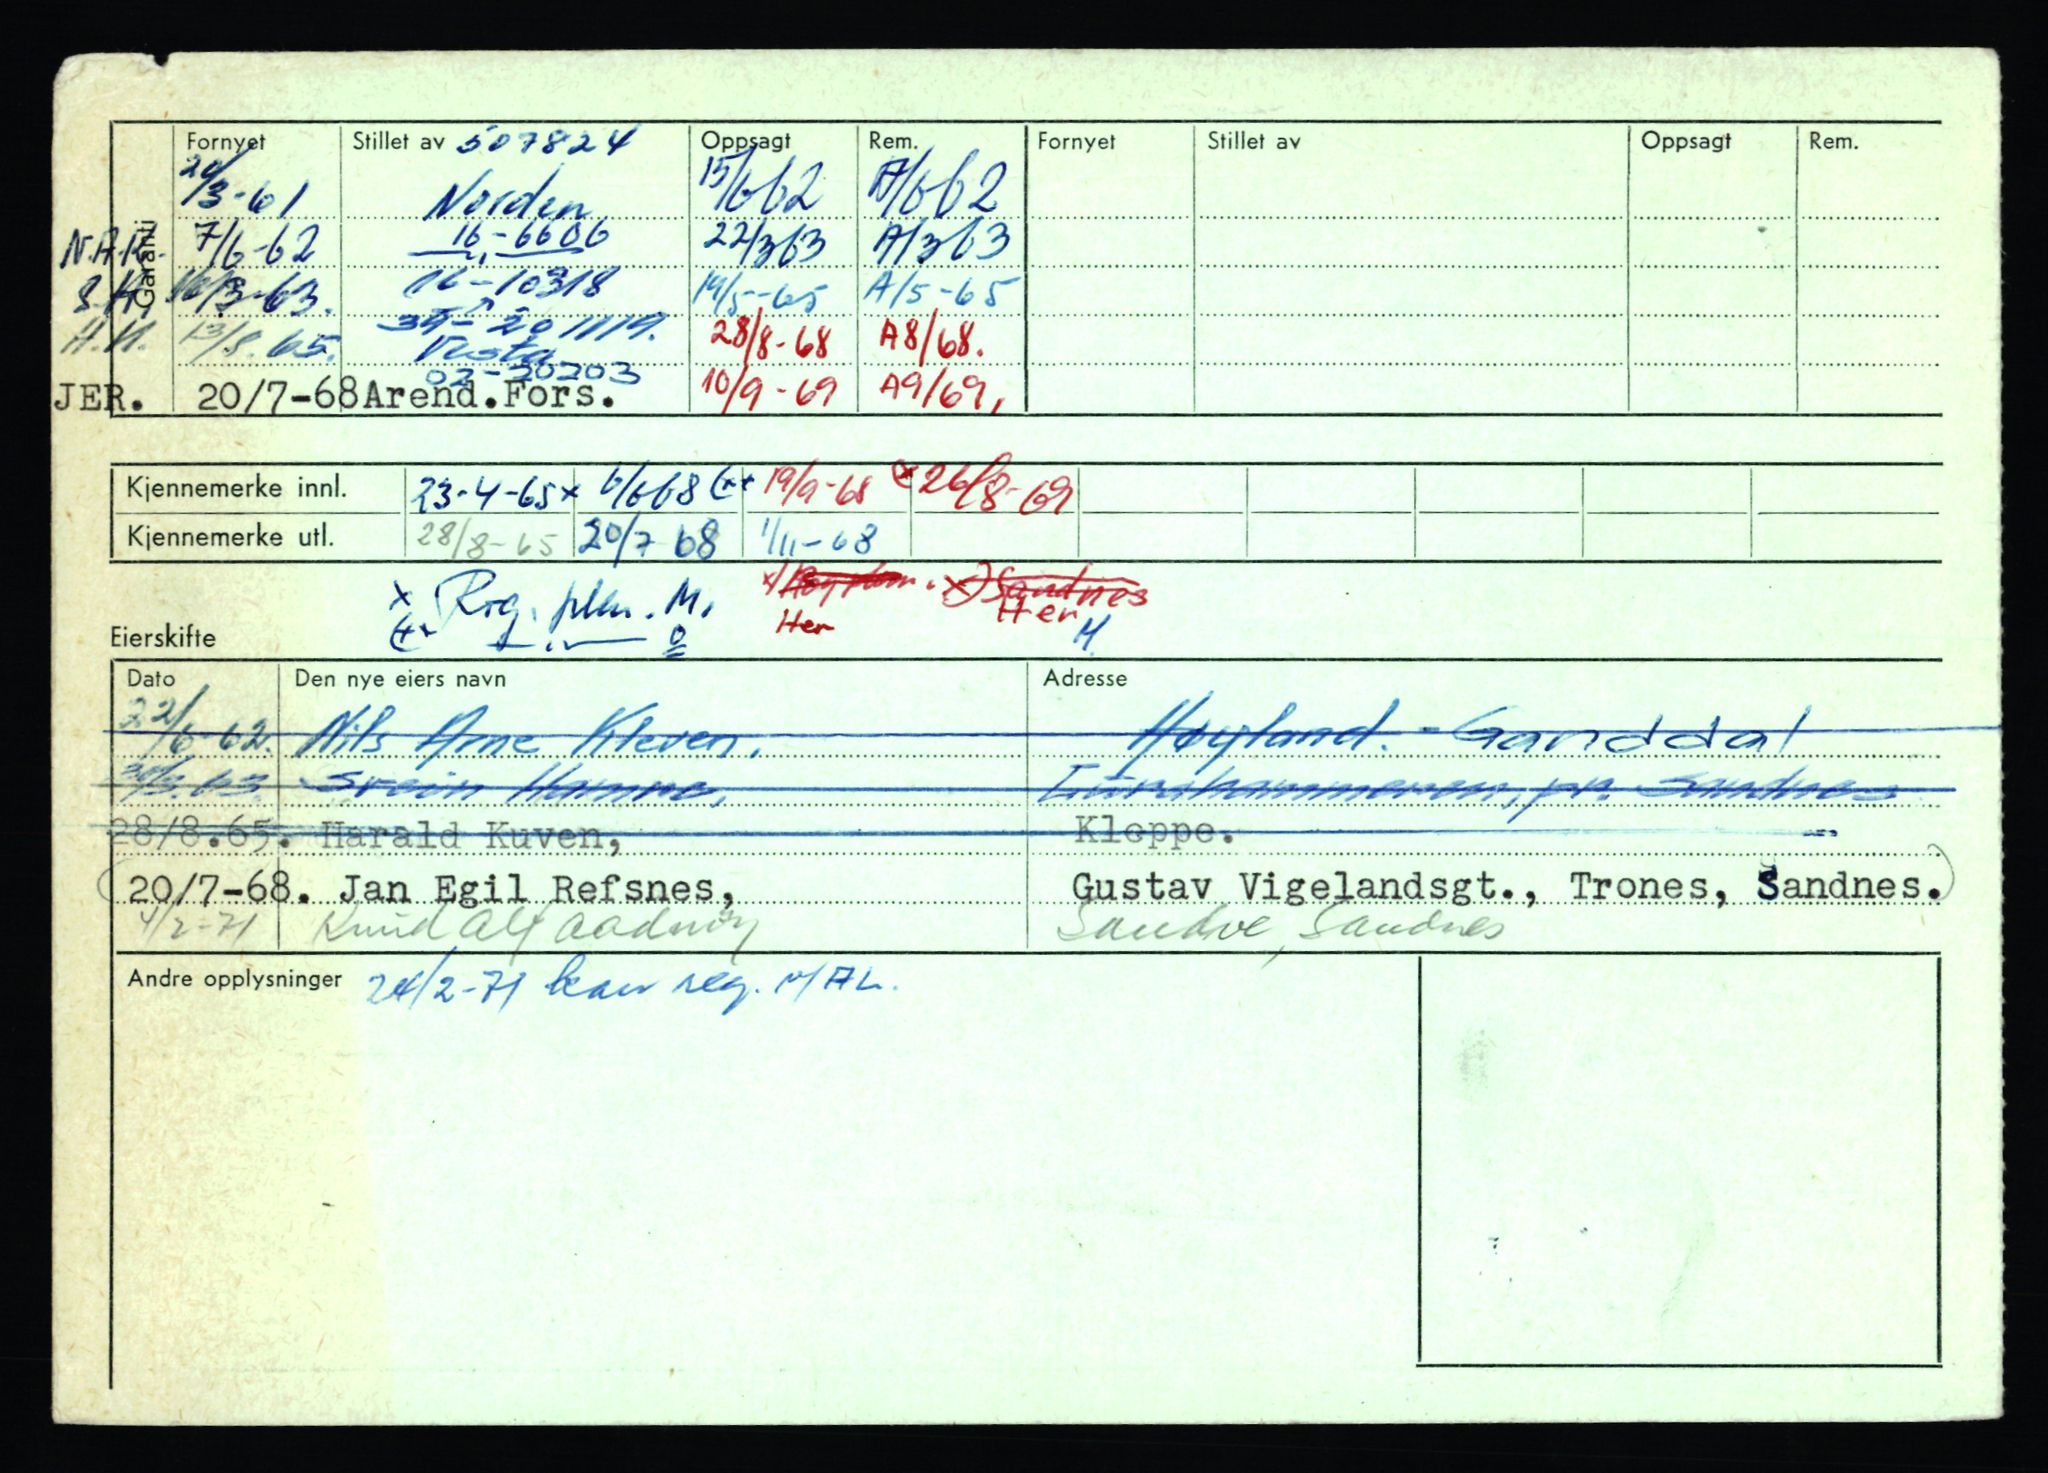 Garanti
Fornyet Stillet av 507824 Oppsagt Rem. Fornyet Stillet av Oppsagt Rem.
/3-61 Norden 15/6 62 A/6 62
7/6-62 16-6606 22/3 63 A/3 63
/3-63. 16-10318 14/5-65 A/5-65
H.K. 13/8.65. 39-201119. 28/8-68 A8/68.
Vesta
02-20203
JER. 20/7-68 Arend.Fors. 10/9-69 A9/69,
Kjennemerke innl. 23-4-65 x 6/6 68 19/9-68 26/8-69
Kjennemerke utl. 28/8-65 20/7 68 1/11-68
x Reg. plm. M. x) Sandnes
Her Her
M.
Eierskifte
Dato Den nye eiers navn Adresse
22/6-62. Nils Arne Kleven. Høyland. - Ganddal
Svein Hamre, pr. Sandnes
28/8.65. Harald Kuven, Kleppe.
20/7-68. Jan Egil Refsnes, Gustav Vigelandsgt., Trones, Sandnes.
4/2-71 Knud Alf Sandve, Sandnes
Andre opplysninger 24/2-71 reg.